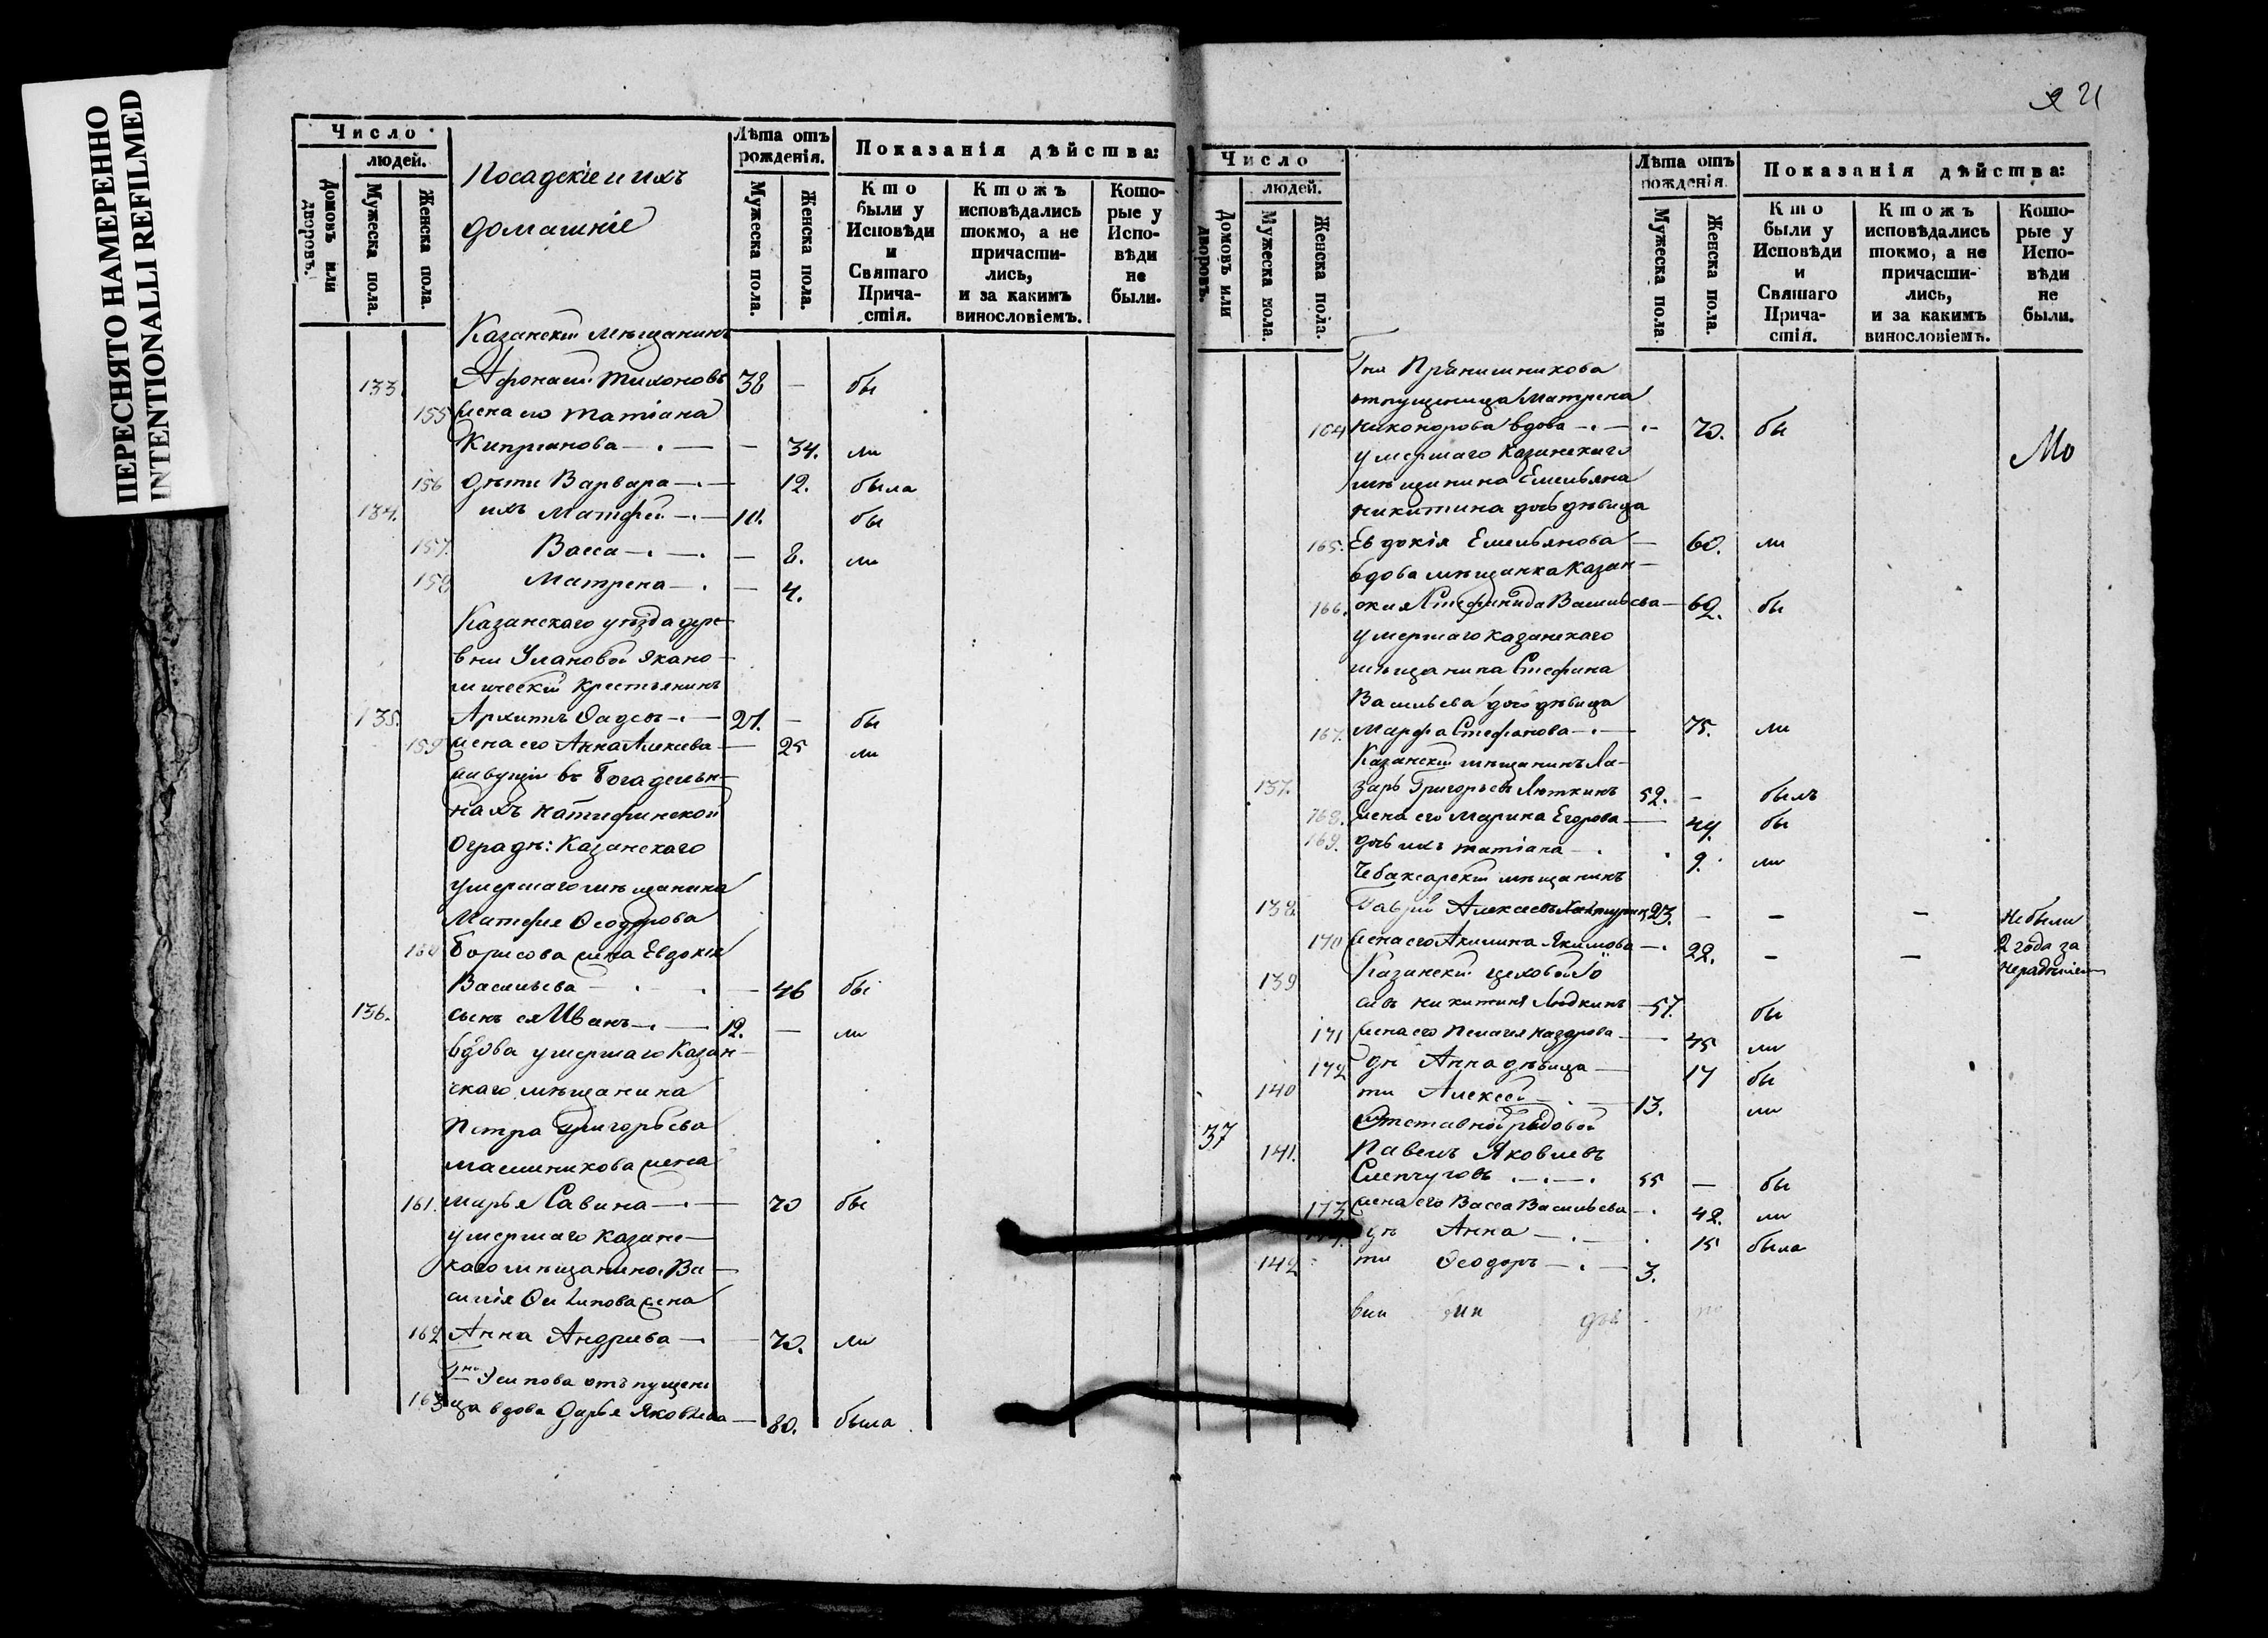 ПЕРЕСНЯТО НАМЕРЕННО
INTENTIONALLI REFILMED
Число
людей.
Домовъ или дворовъ.
Мужеска пола.
Женска пола.
Посадскіе и ихъ
домашніе
Лѣта отъ рожденія.
Мужеска пола.
Женска пола.
Показанія дѣйства:
Кто были у Исповѣди и Святаго Причастія.
Ктожъ исповѣдались токмо, а не причастились, и за какимъ винословіемъ.
Которые у Исповѣди не были.
Казанскій мѣщанинъ
133 Афонасій Тихоновъ 38 — бы
155 жена его Татіана
Кипріанова — 34. ли
156 дѣти Варвара — 12. была
134. ихъ Матфей — 10. бы
157. Васса — 8. ли
158 Матрена — 4.
Казанскаго уѣзда дере
вни Улановой Экано
мическій крестьянинъ
135. Архипъ — 27. — бы
159 жена его Анна Алекѣева — 25 ли
живущіе въ богадельн
няхъ
Оградѣ: Казанскаго
умершаго мѣщанина
Матфея Ѳеодорова
160 Борисова жена Евдокія
Васильева — 46 бы
136. сынъ ея Иванъ — 12. — ли
вдова умершаго Казан
скаго мѣщанина
Петра Григорьева
Масленикова жена
161. Марья Савина — 70 бы
умершаго Казанс
каго мѣщанина Ва
силія жена
162 Анна Андреева — 70. ли
Гна Осипова отъпущени
163 ца вдова Дарья Яковлева — 80. была
21
Число
людей.
Домовъ или дворовъ.
Мужеска пола.
Женска пола.
Лѣта отъ рожденія.
Мужеска пола
Женска пола.
Показанія дѣйства:
Кто были у Исповѣди и Святаго Причастія.
Ктожъ исповѣдались токмо, а не причастились, и за какимъ винословіемъ.
Которые у Исповѣди не были.
Гна Прянишникова
отпущеница Матрена
164 Никонорова вдова — 70. бы
умершаго Казанскаго
мѣщанина Емельяна
Никитина дочь дѣвица
165. Евдокія Емельянова — 60. ли
вдова мѣщанка Казан
166. ская Стефанида Васильева — 62. бы
умершаго Казанскаго
мѣщанина Стефана
Васильева дочь дѣвица
167. Марфа Стефанова — 75. ли
Казанскій мѣщанинъ Ла
137. зарь Григорьевъ Ляткинъ 52. — былъ
168. жена его Марина Егорова — 44. бы
169. дочь ихъ Татіана — 9. ли
Чебаксарскій мѣщанинъ
138. Гаврій Алексеевъ 23. — — — Небыли
170 жена его Акилина Якимова — 22. — — 2 года за
139 Казанскій цеховой Іо нерадѣніемъ
сивъ Никитинъ Людкинъ — 57. бы
171 жена его Пелагея Назарова — 45 ли
172 дѣ Анна дѣвица — 17 бы
140 ти Алексей — 13. ли
37 Отставной рядовой
141. Павелъ Яковлевъ
Слепчуговъ 55 — бы
173 жена его Васса Васильева — 42. ли
дѣ Анна — 15 была
142 ти Ѳеодоръ — 3.